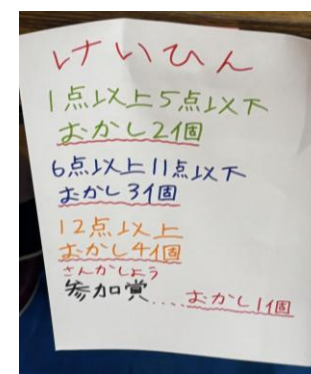 けいひん
1点以上5点以下
おかし2個
6点以上11点以下
おかし3個
12点以上
おかし4個
さんかしょう
参加賞....おかし1個